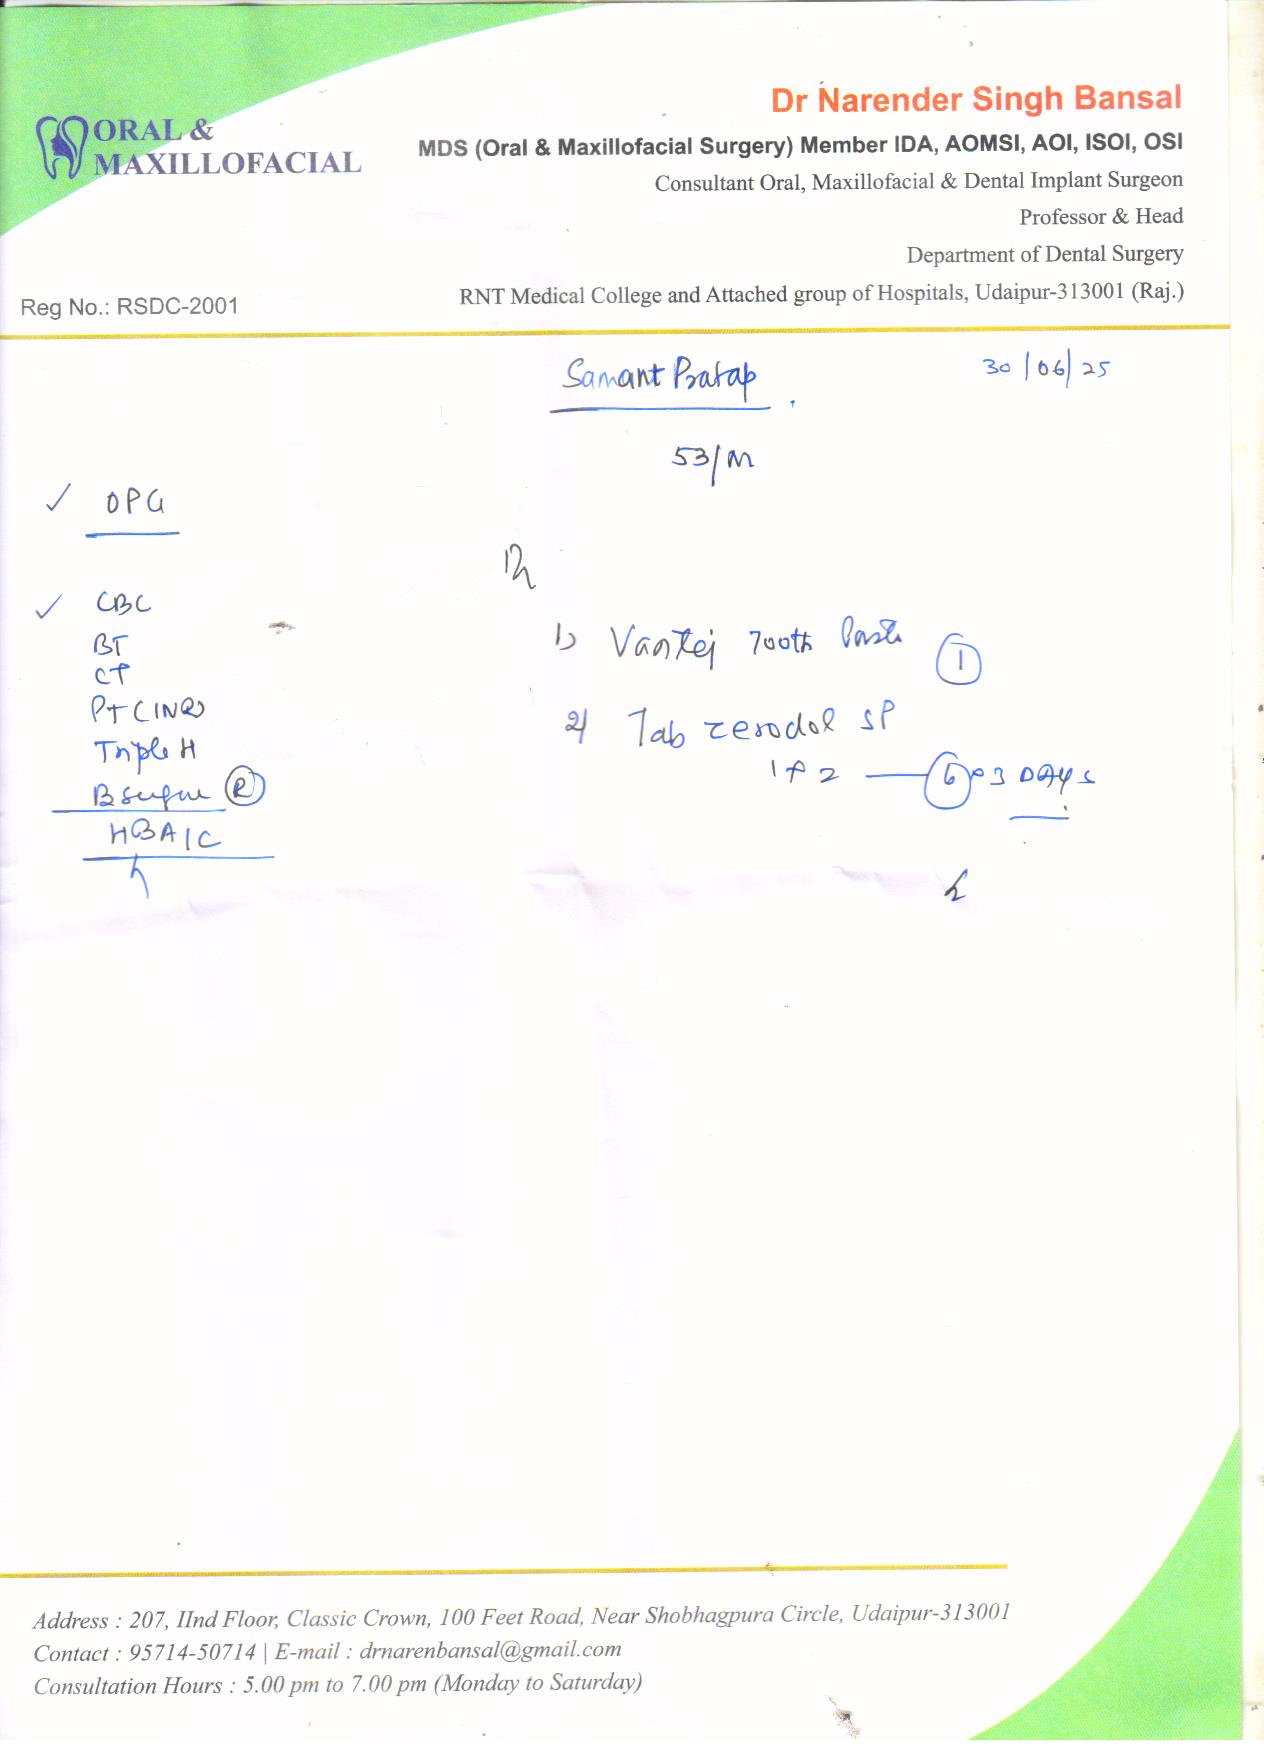 ORAL &
MAXILLOFACIAL
Dr Narender Singh Bansal
MDS (Oral & Maxillofacial Surgery) Member IDA, AOMSI, AOI, ISOI, OSI
Consultant Oral, Maxillofacial & Dental Implant Surgeon
Professor & Head
Department of Dental Surgery
RNT Medical College and Attached group of Hospitals, Udaipur-313001 (Raj.)
Reg No.: RSDC-2001
Samant Pratap
30/06/25
53/M
OPG
CBC
BT
CT
PT (INR)
Triple H
B sugar (R)
HBA1C
1) Vantej Tooth Paste (1)
2) Tab zerodol SP
1 + 2 — (6) 3 DAYS
Address : 207, IInd Floor, Classic Crown, 100 Feet Road, Near Shobhagpura Circle, Udaipur-313001
Contact : 95714-50714 | E-mail : drnarenbansal@gmail.com
Consultation Hours : 5.00 pm to 7.00 pm (Monday to Saturday)